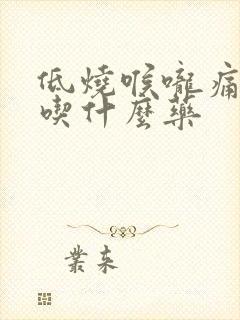 低燒喉嚨痛
喫什麼藥
叢末